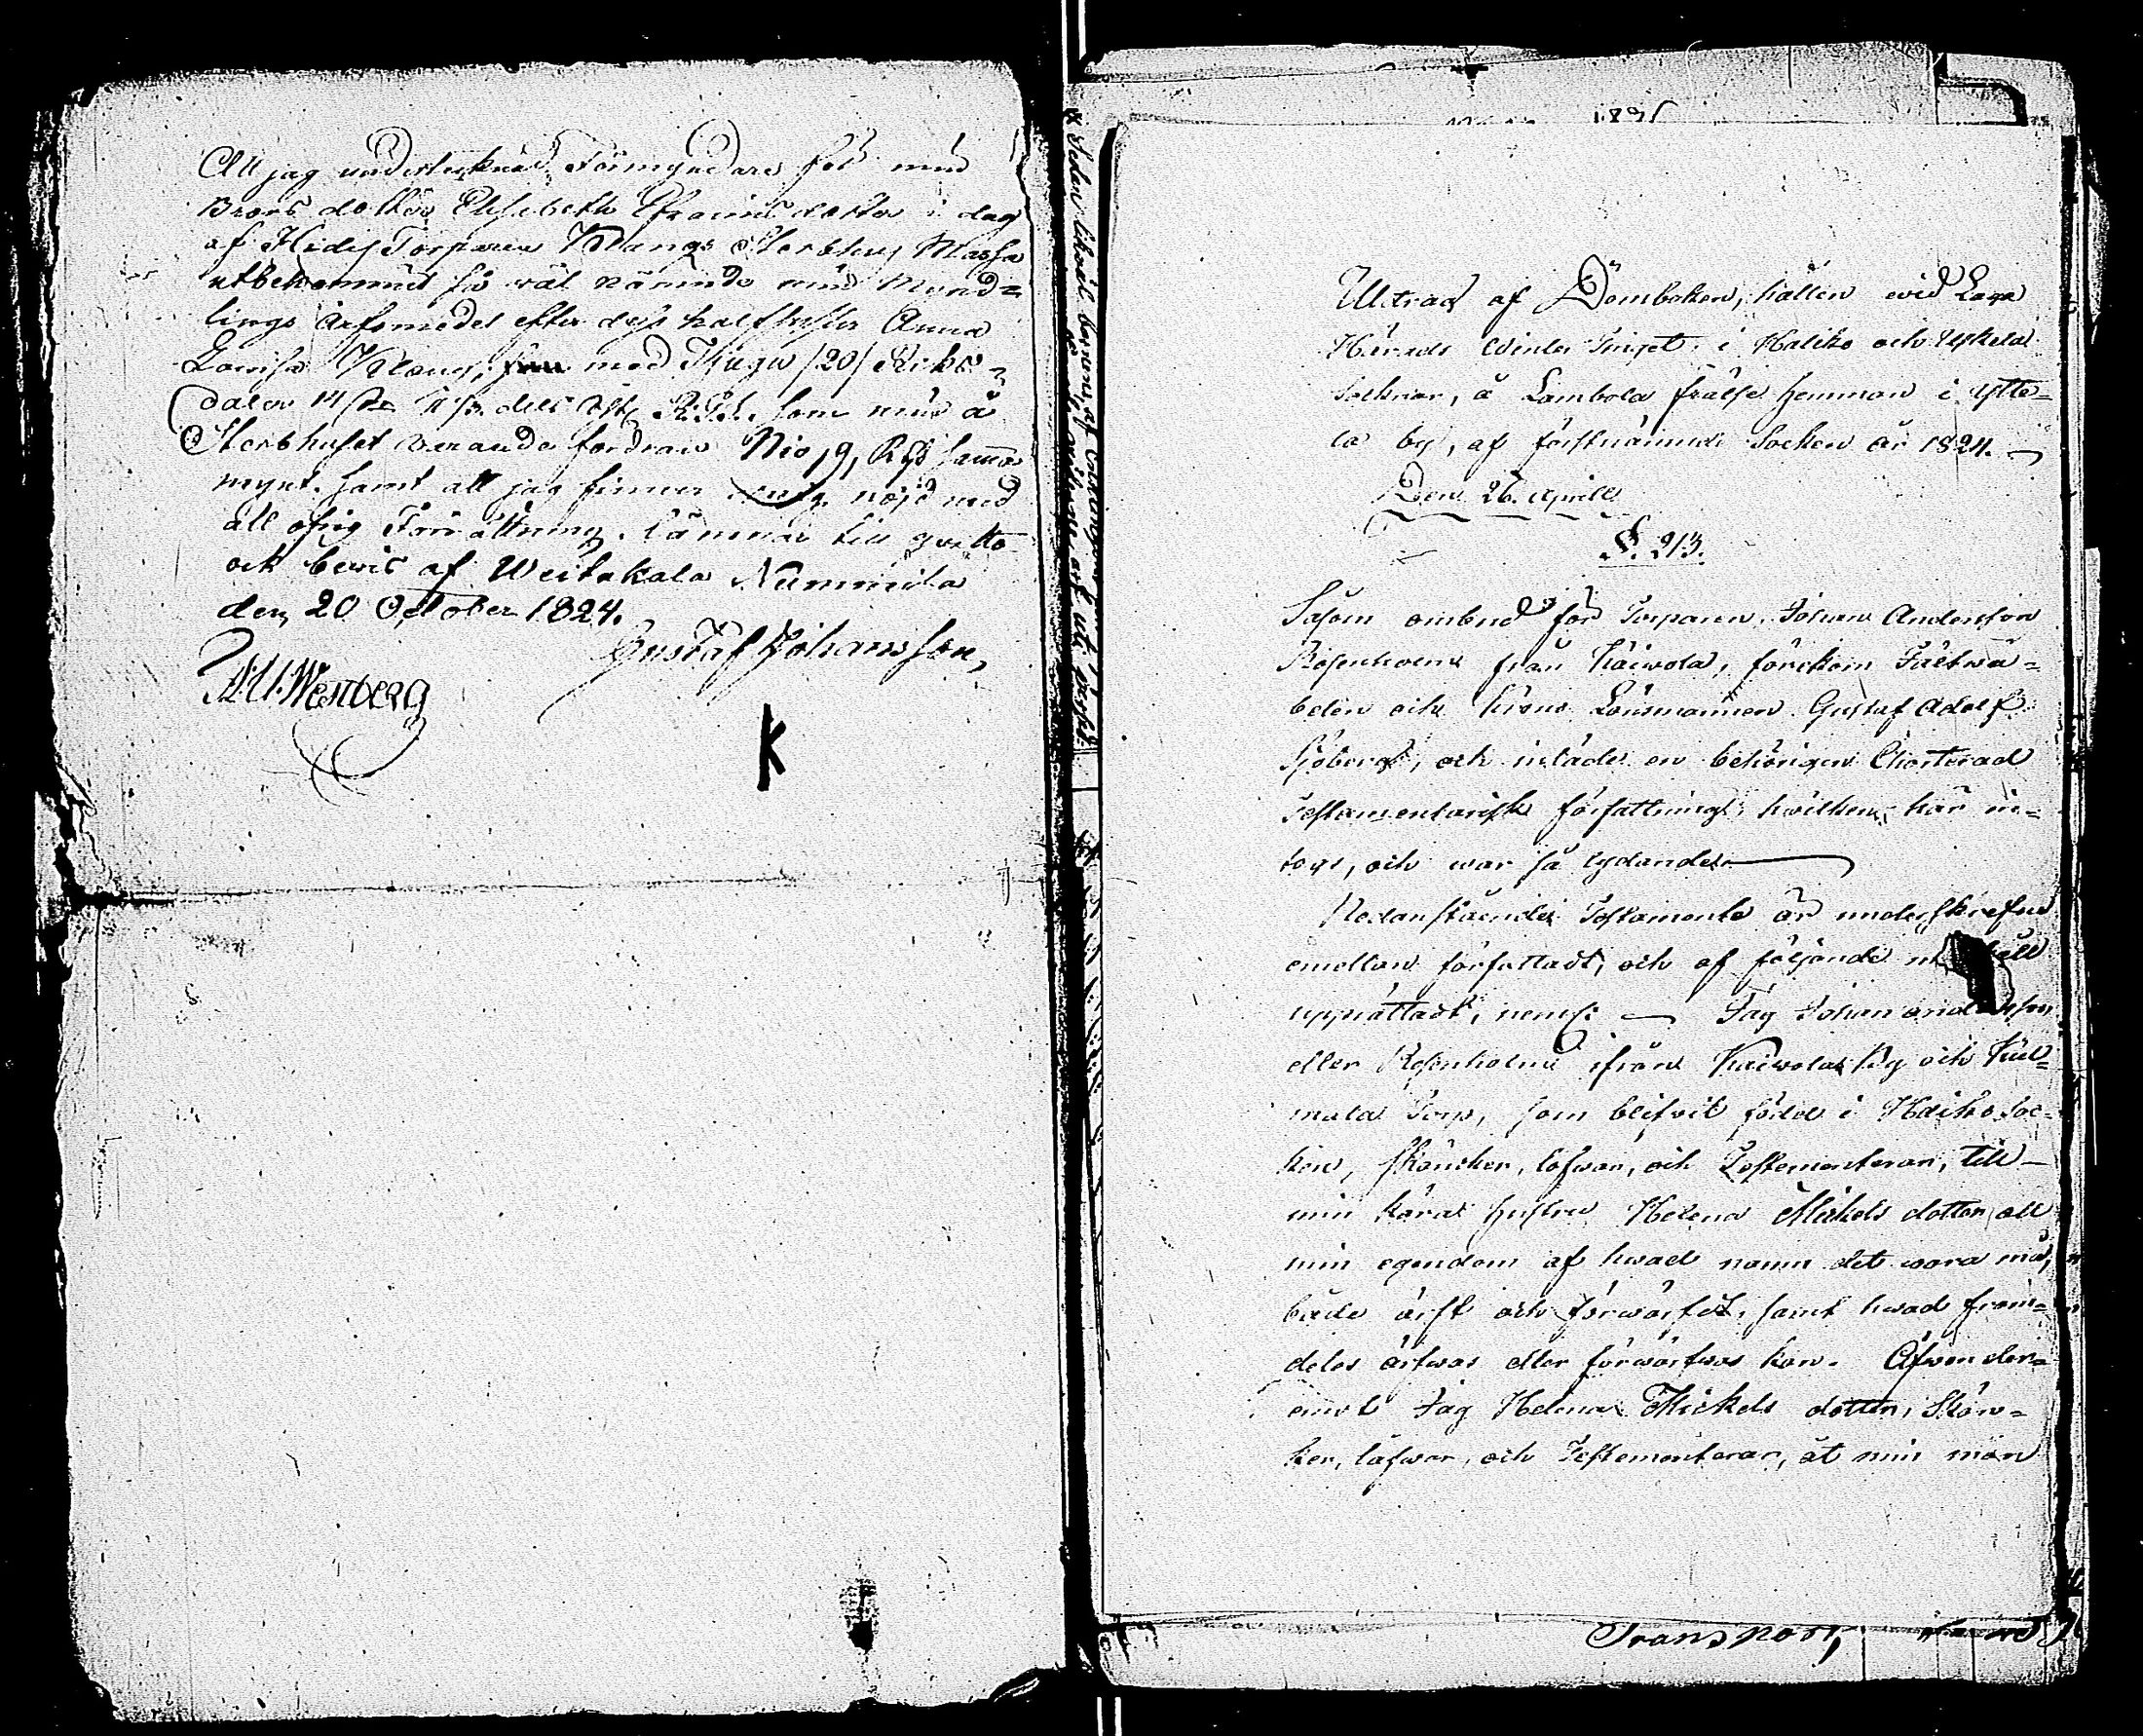 Att jag undertecknad Förmyndare för min
Brors dotter Elisabeth Efraims dotter i dag
af Afledl. Torparen Klangs Sterbhus Massa
utbekommit så väl nämnde min Mynd=
lings Arfsmedel efter dess half syster Anna
Lovisa Klang, med Tjugu /20/ Riks=
daler R:Gs. som min å
Sterbhuset varande fordran Nio, 9, R:gs samma
mynt. samt att jag finner mig nöjd med
all öfrig Förrättning, lämnar till quitto
och bevis af Weitakala Nummila
den 20 October 1824.
Gustaf Johansson,
A.U. Wenberg
K
1825
Utdrag af Domboken, hållen wid Laga
Härads Winter Tinget i Haliko och Uskela
Socknar, å Lambola frälse hemman i Ytte=
la by, af förstnämnde Socken år 1824.
Den 26. Aprill
§. 213.
Såsom ombud för Torparen Johan Andersson
Rosenholm från Kaiwola, förekom Fältwä=
belen och Krono Länsmannen Gustaf Adolf
Sjöberg, och inlade en behörigen Charterad
Testamentarisk författning, hwilken här in=
togs, och war så lydande:
Nedanstående Testamente är underskrefne
emellan författadt, och af följande till
upprättadt, neml: Jag Johan Andersson
eller Rosenholm ifrån Kaiwola By och Kul=
mala Torp, som blifvit född i Haliko Soc=
ken, skäncker, låfwar, och Testementerar, till
min kära hustru Helena Mickels dotter all
min egendom af hwad namn det wara må,
både ärft och förwärfdt, samt hwad fram=
deles ärfwas eller förwärfwas kan. Äfwen der=
emot Jag Helena Mickels dotter, Skän=
ker, låfwar, och Testementerar, åt min man
Transport,